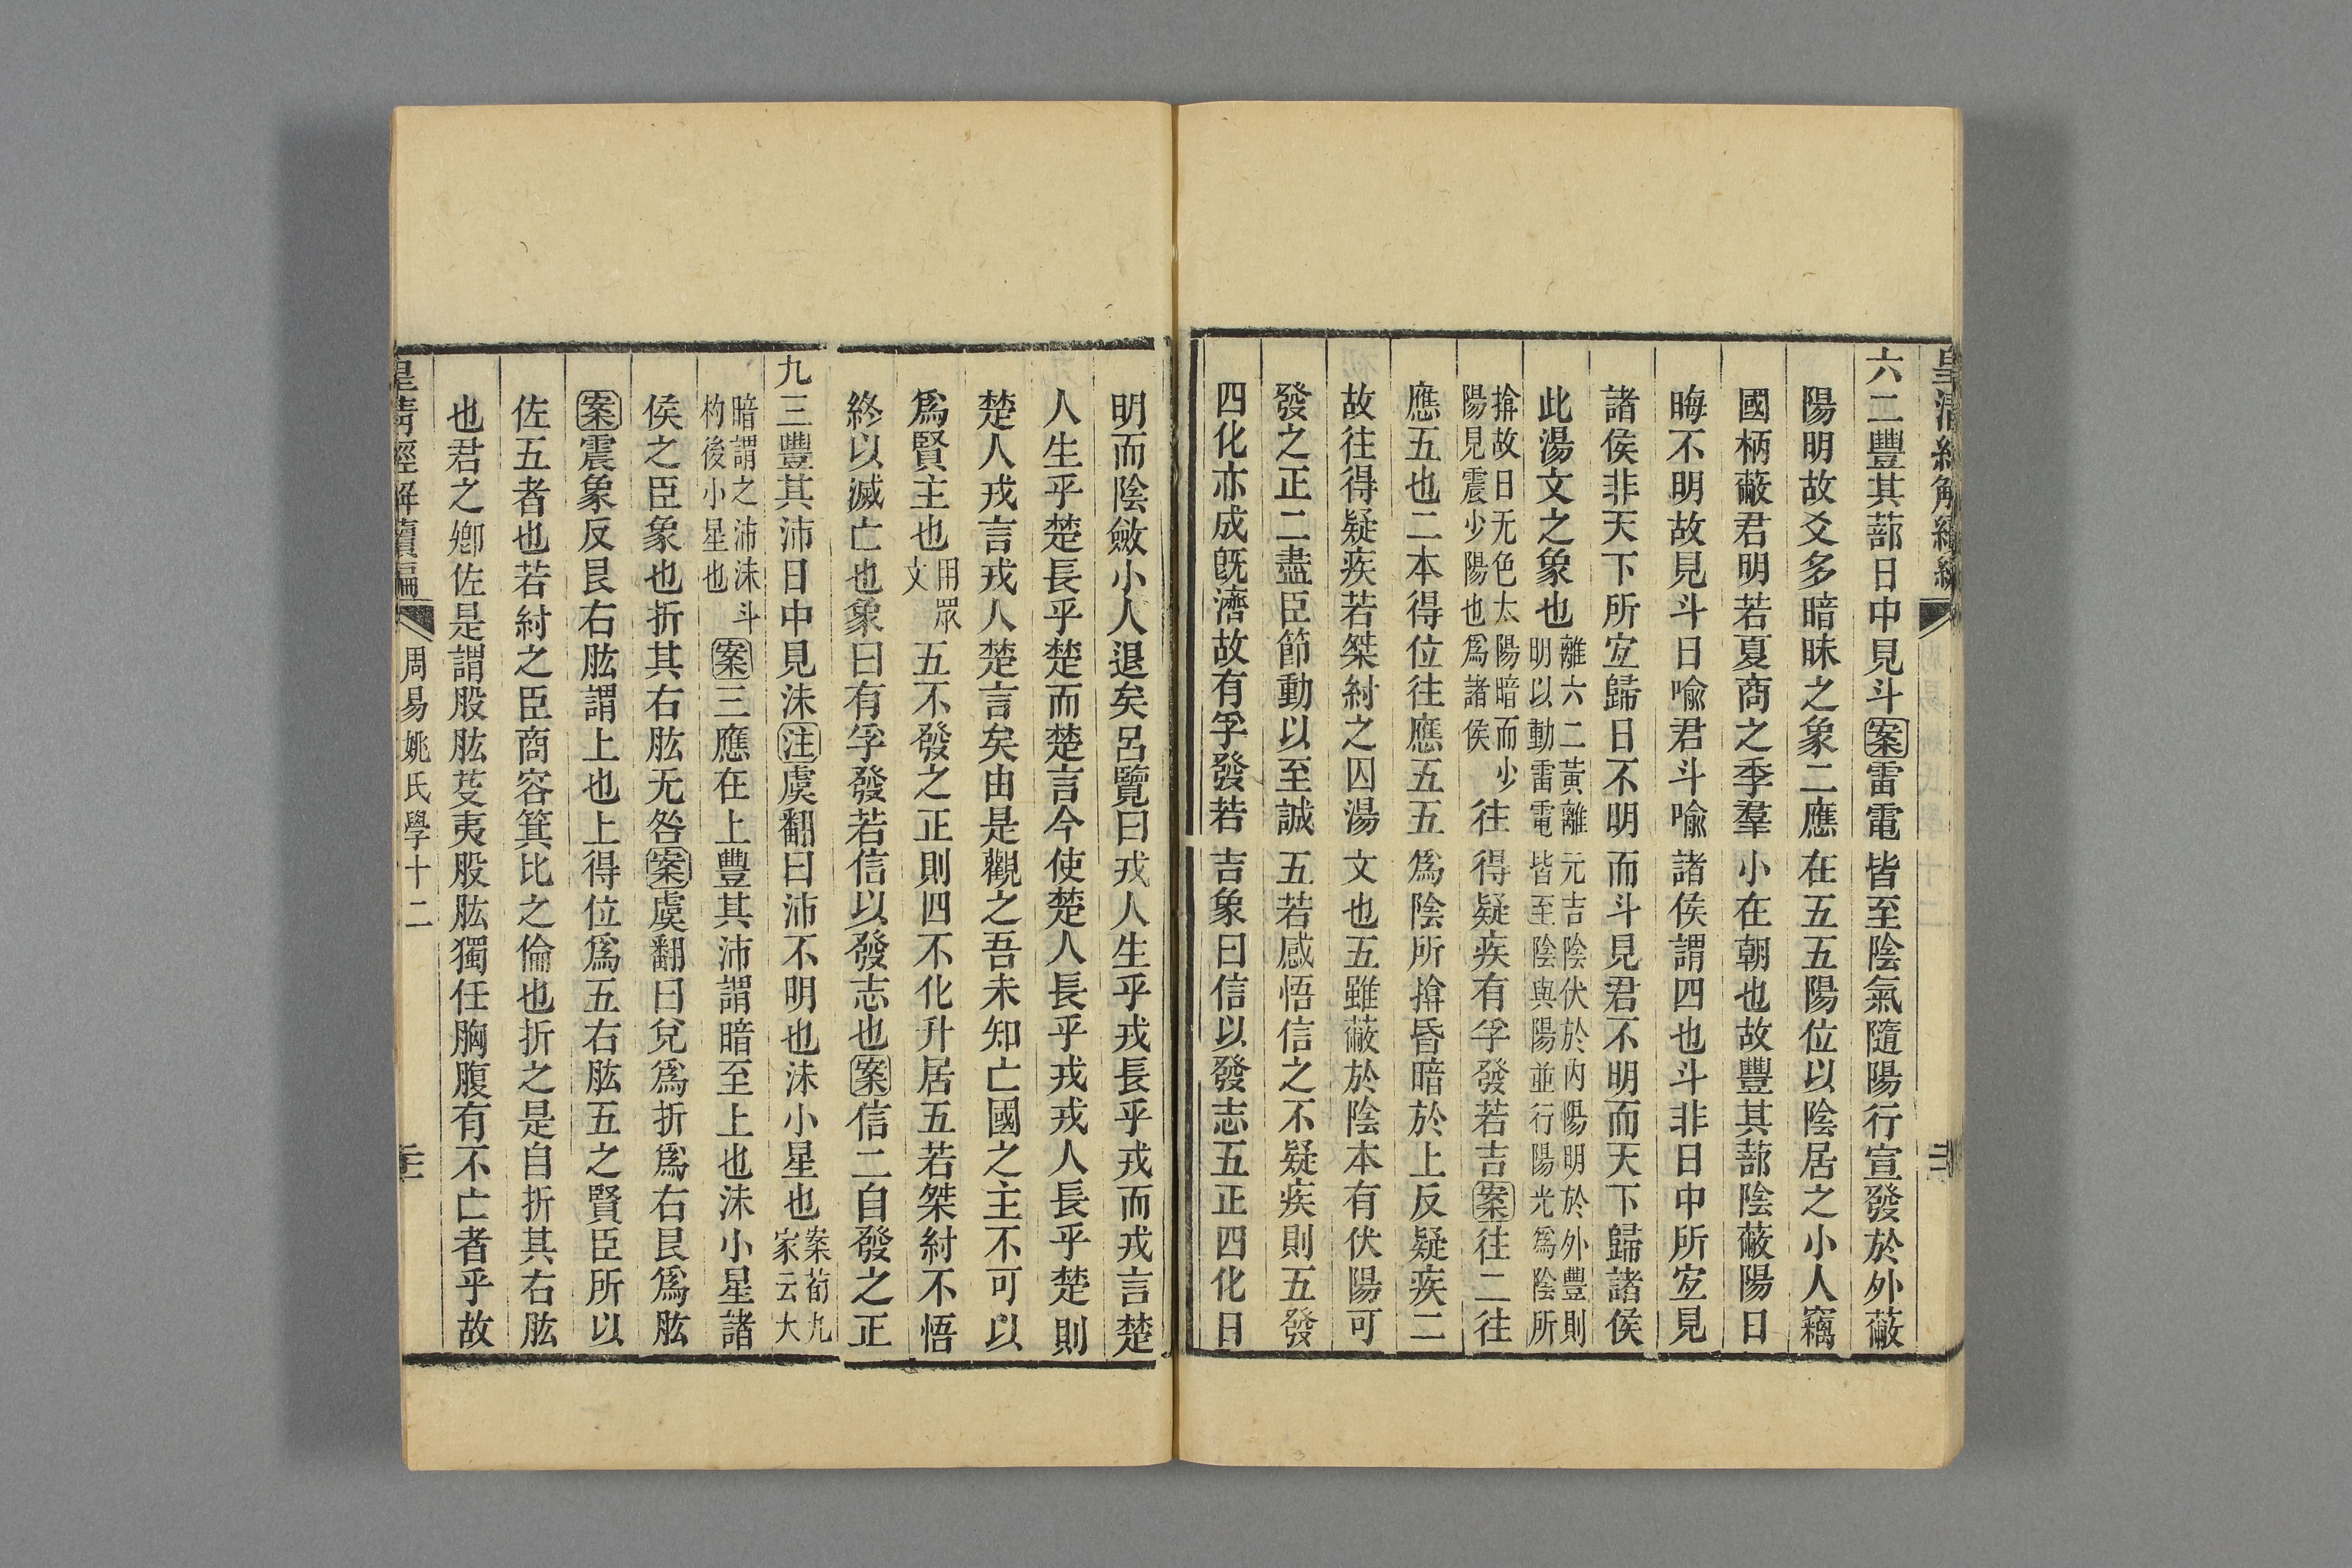 六二豐其蔀日中見斗案雷電皆至陰氣隨陽行宣發於外蔽
陽明故爻多暗昧之象二應在五五陽位以陰居之小人竊
國柄蔽君明若夏商之季羣小在朝也故豐其蔀陰蔽陽日
晦不明故見斗日喩君斗喩諸侯謂四也斗非日中所宐見
諸侯非天下所宐歸日不明而斗見君不明而天下歸諸侯
此湯文之象也離六二黃離元吉陰伏於內陽明於外豐則明以動雷電皆至陰與陽並行陽光爲陰所
揜故日无色太陽暗而少陽見震少陽也爲諸侯往得疑疾有孚發若吉案往二往
應五也二本得位往應五五爲陰所揜昏暗於上反疑疾二
故往得疑疾若桀紂之囚湯文也五雖蔽於陰本有伏陽可
發之正二盡臣節動以至誠五若感悟信之不疑疾則五發
四化亦成旣濟故有孚發若吉象曰信以發志五正四化日
明而陰斂小人退矣呂覽曰戎人生乎戎長乎戎而戎言楚
人生乎楚長乎楚而楚言今使楚人長乎戎戎人長乎楚則
楚人戎言戎人楚言矣由是觀之吾未知亡國之主不可以
爲賢主也用眾文五不發之正則四不化升居五若桀紂不悟
終以滅亡也象曰有孚發若信以發志也案信二自發之正
九三豐其沛日中見沬注虞翻曰沛不明也沬小星也案荀九家云大
暗謂之沛沬斗杓後小星也案三應在上豐其沛謂暗至上也沬小星諸
侯之臣象也折其右肱无咎案虞翻曰兌爲折爲右艮爲肱
案震象反艮右肱謂上也上得位爲五右肱五之賢臣所以
佐五者也若紂之臣商容箕比之倫也折之是自折其右肱
也君之卿佐是謂股肱芟夷股肱獨任胸腹有不亡者乎故
皇清經解續編
周易姚氏學十二